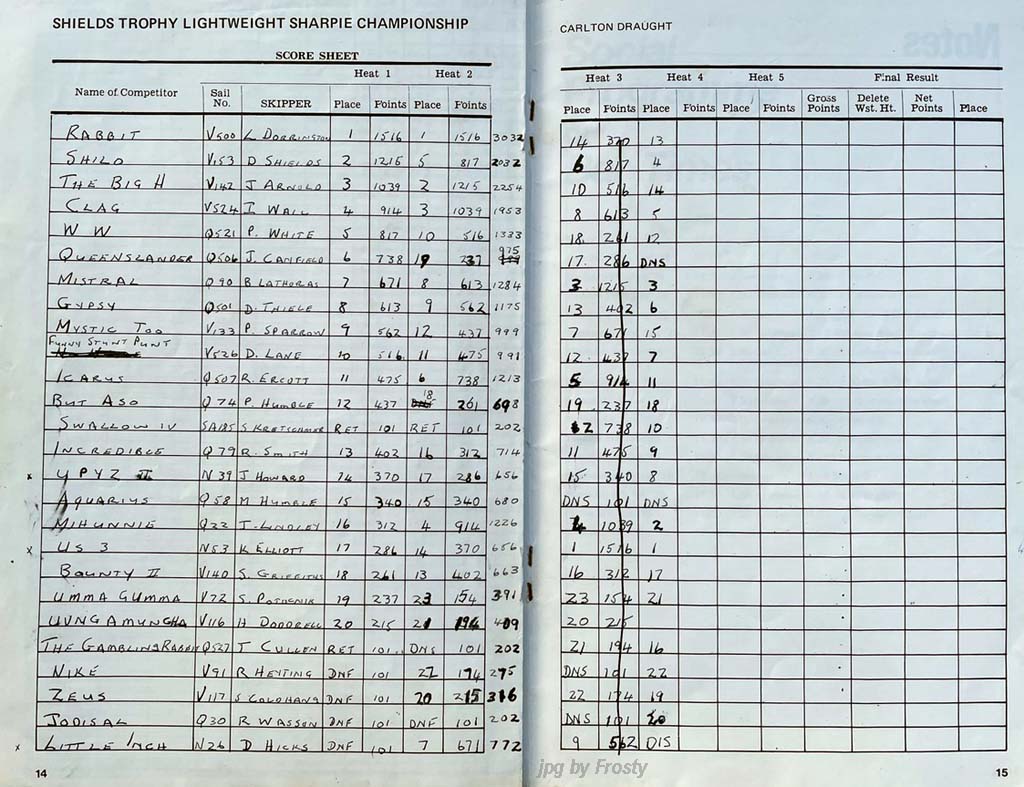 SHIELDS TROPHY LIGHTWEIGHT SHARPIE CHAMPIONSHIP
SCORE SHEET
Heat 1 Heat 2
Name of Competitor Sail No. SKIPPER Place Points Place Points
RABBIT V500 L DORRINGTON 1 1516 1 1516 3032
SHILO V153 D SHIELDS 2 1215 5 817 2032
THE BIG H V142 J ARNOLD 3 1039 2 1215 2254
CLAG V524 I WALL 4 914 3 1039 1953
W W Q521 P. WHITE 5 817 10 516 1333
QUEENSLANDER Q506 J. CANFIELD 6 738 19 237 975
MISTRAL Q90 B LATHORAS 7 671 8 613 1284
GYPSY Q501 D. THIELE 8 613 9 562 1175
MYSTIC TOO V133 P. SPARROW 9 562 12 437 999
FUNNY STUNT PUNT V526 D. LANE 10 516 11 475 991
ICARUS Q507 R. ERCOTT 11 475 6 738 1213
BUT ASO Q74 P. HUMBLE 12 437 18 261 698
SWALLOW IV SA185 S KRETSCHMER RET 101 RET 101 202
INCREDIBLE Q79 R. SMITH 13 402 16 312 714
x YPYZ II N39 J HOWARD 14 370 17 286 656
AQUARIUS Q58 M HUMBLE 15 340 15 340 680
MIHUNNIE Q22 T. LINDLEY 16 312 4 914 1226
x US 3 N53 K ELLIOTT 17 286 14 370 656
BOUNTY II V140 S. GRIFFITHS 18 261 13 402 663
UMMA GUMMA V72 S. 19 237 23 154 391
UVNGAMUNGHA V116 H DODDRELL 20 215 21 194 409
THE GAMBLING RABBIT Q527 T CULLEN RET 101 DNS 101 202
NIKE V91 R HEYTING DNF 101 22 174 275
ZEUS V117 S DNF 101 20 215 316
JODISAL Q30 R WASSON DNF 101 DNF 101 202
x LITTLE INCH N26 D HICKS DNF 101 7 671 772
14
CARLTON DRAUGHT
Heat 3 Heat 4 Heat 5 Final Result
Place Points Place Points Place Points Gross Points Delete Wst. Ht. Net Points Place
14 370 13
6 817 4
10 516 14
8 613 5
18 261 12
17 286 DNS
3 1215 3
13 402 6
7 671 15
12 437 7
5 914 11
19 237 18
2 738 10
11 475 9
15 340 8
DNS 101 DNS
4 1039 2
1 1516 1
16 312 17
23 154 21
20 215
21 194 16
DNS 101 22
22 174 19
DNS 101 20
9 562 DIS
15
jpg by Frosty